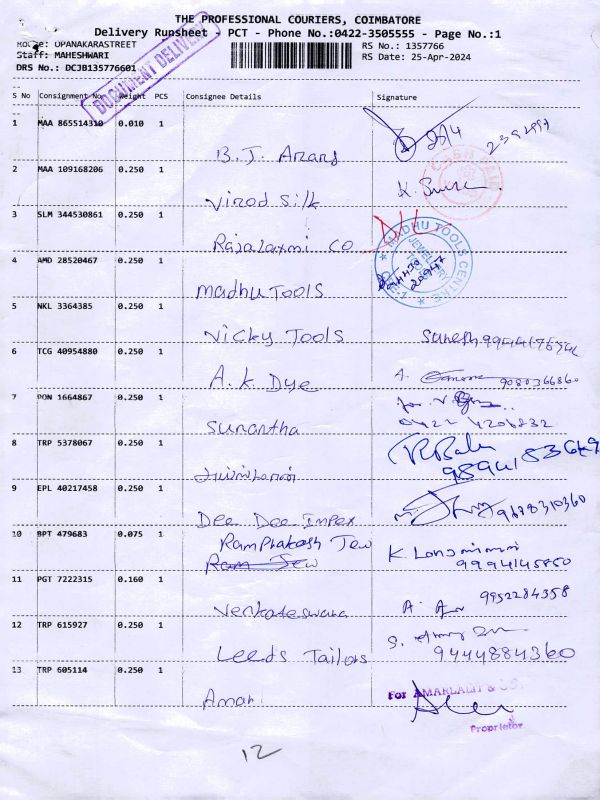 THE PROFESSIONAL COURIERS, COIMBATORE
Delivery Runsheet - PCT - Phone No.:0422-3505555 - Page No.:1
Route: OPANAKARASTREET
RS No.: 1357766
Staff: MAHESHWARI
RS Date: 25-Apr-2024
DRS No.: DCJB135776601
DOCUMENT DELIVERY
S No Consignment No. Weight PCS Consignee Details Signature
1 MAA 865514310 0.010 1 B.J. Anand 25/4
2 MAA 109168206 0.250 1 Vinod Silk K.
CASH PAID
3 SLM 344530861 0.250 1 Rajalaxmi Co
4 AMD 28520467 0.250 1 Madhu Tools
MADHU TOOLS CENTRE
JEWELLERY TOOLS
5 NKL 3364385 0.250 1 Vicky Tools Suresh
6 TCG 40954880 0.250 1 A.K. Dye A. 9080366860
7 PON 1664867 0.250 1 Sunantha for
0422 4206832
8 TRP 5378067 0.250 1 R Balu
9 EPL 40217458 0.250 1 Dee Dee Impex 9678310360
10 BPT 479683 0.075 1 Ramprakash Jew K.
Ram Jew 9994145850
11 PGT 7222315 0.160 1 Venkateswara A. 9952284358
12 TRP 615927 0.250 1 Leeds Tailors S.
9444884360
13 TRP 605114 0.250 1 Amar.
For AMARLALIT & CO.
Proprietor
12